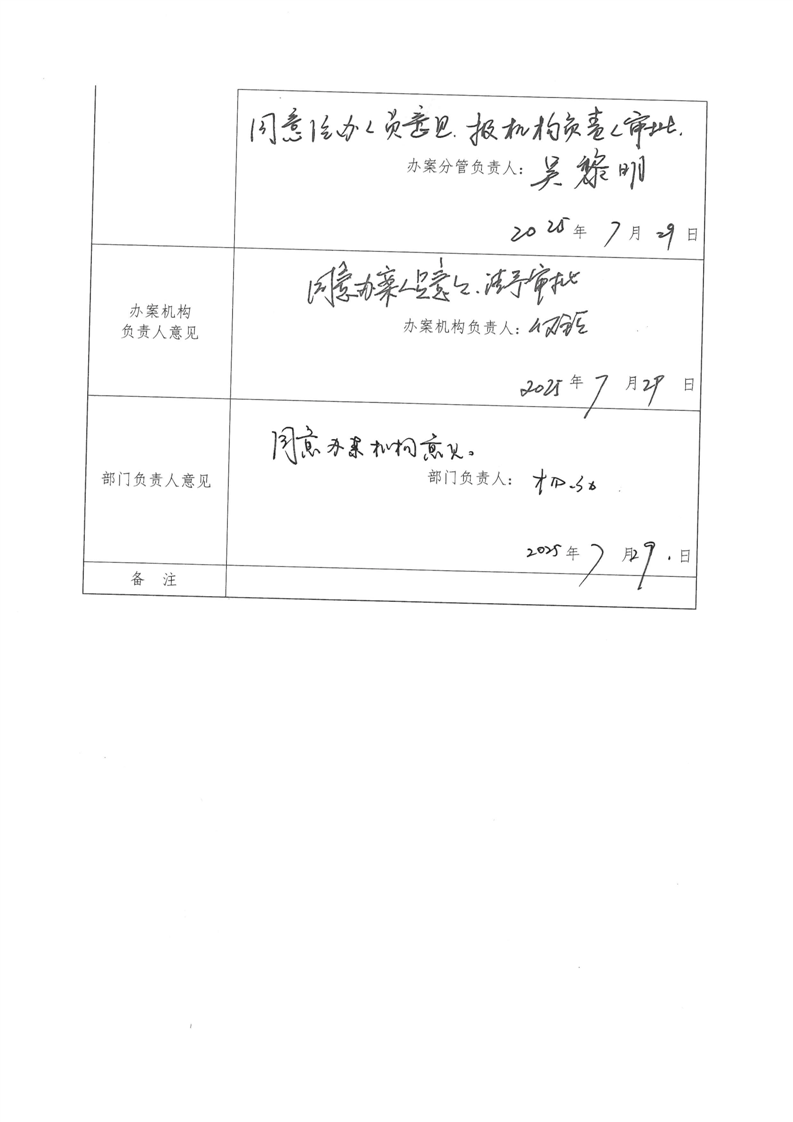 同意经办人员意见，报机构负责人审批．
办案分管负责人：吴黎明
2025年7月29日
办案机构
负责人意见
同意办案人员意见，请予审批
办案机构负责人：
2025年7月29日
部门负责人意见
同意办案机构意见。
部门负责人：
2025年7月29日
备 注